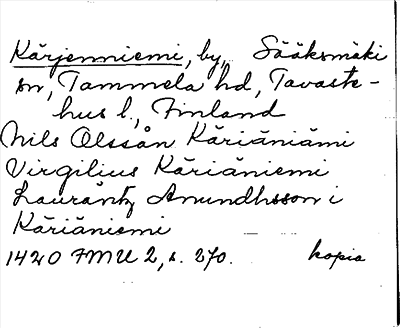 Kärjenniemi, by, Sääksmäki
sn, Tammela hd, Tavaste-
hus l., Finland
Nils Olssån Käriäniämi
Virgilius Käriäniemi
Lauräntz Amundhsson i
Käriäniemi
1420 FMU 2, s. 270. kopia